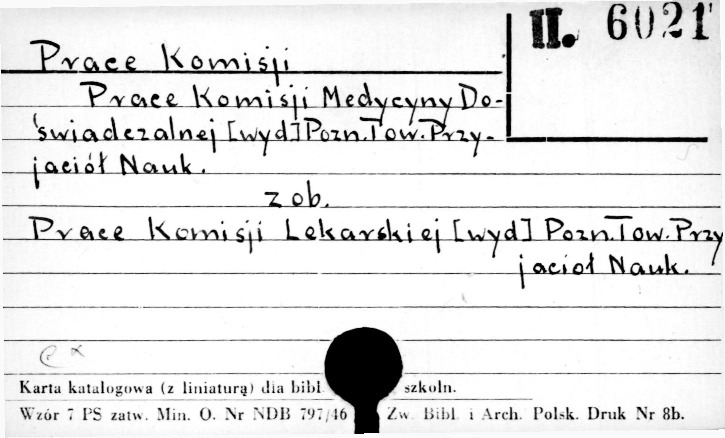 II. 6021
Prace Komisji
Prace Komisji Medycyny Do-
świadczalnej [wyd] Pozn. Tow. Przy-
jaciół Nauk.
zob.
Prace Komisji Lekarskiej [wyd] Pozn. Tow. Przy
jacioł Nauk.
Karta katalogowa (z liniaturą) dla bibl szkoln.
Wzór 7 PS zatw. Min. O. Nr NDB 797/46 Zw. Bibl. i Arch. Polsk. Druk Nr 8b.